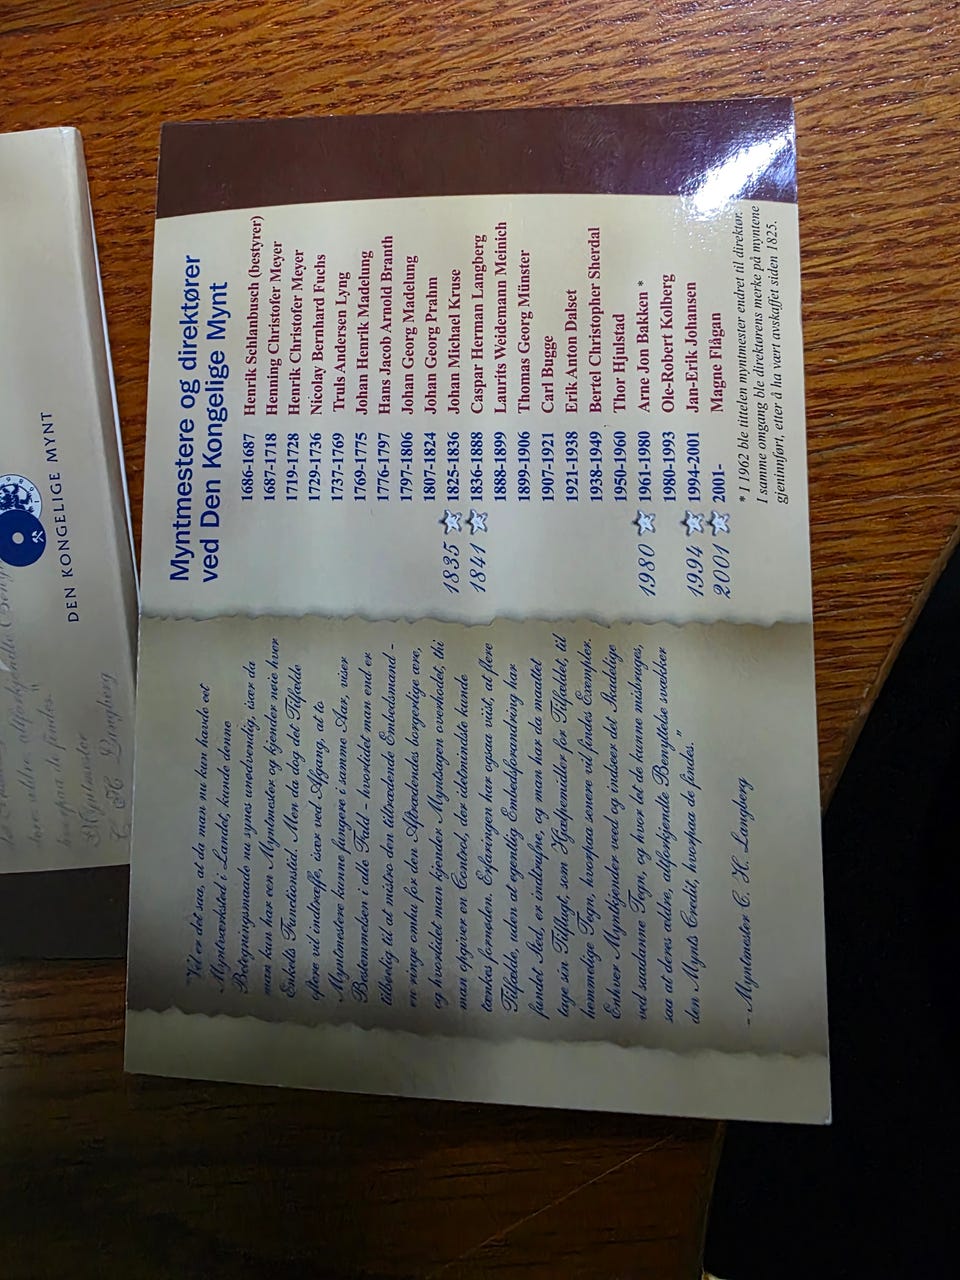 Myntmestere og direktører
ved Den Kongelige Mynt
1686-1687 Henrik Schlanbusch (bestyrer)
1687-1718 Henning Christofer Meyer
1719-1728 Henrik Christofer Meyer
1729-1736 Nicolay Bernhard Fuchs
1737-1769 Truls Andersen Lyng
1769-1775 Johan Henrik Madelung
1776-1797 Hans Jacob Arnold Branth
1797-1806 Johan Georg Madelung
1807-1824 Johan Georg Prahm
1835 1825-1836 Johan Michael Kruse
1841 1836-1888 Caspar Herman Langberg
1888-1899 Laurits Weidemann Meinich
1899-1906 Thomas Georg Münster
1907-1921 Carl Bugge
1921-1938 Erik Anton Dalset
1938-1949 Bertel Christopher Sherdal
1950-1960 Thor Hjulstad
1980 1961-1980 Arne Jon Bakken *
1980-1993 Ole-Robert Kolberg
1994 1994-2001 Jan-Erik Johansen
2001 2001- Magne Flågan
* I 1962 ble tittelen myntmester endret til direktør.
I samme omgang ble direktørens merke på myntene
gjeninnført, etter å ha vært avskaffet siden 1825.
"Vel er det saa, at da man nu kan havde eet
Myntværksted i Landet, kunde denne
Betegningsmaade nu synes unødvendig, især da
man kun har een Myntmester og kjender nøie hver
Enkelts Functionstid. Men da dog det Tilfælde
oftere vil indtræffe, især ved Afgang, at to
Myntmestere kunne fungere i samme Aar, viser
Bestemmelsen i alle Fald - hvorvidt man end er
tilbøelig til at mistro den tiltrædende Embedsmand -
en ringe omhu for den Aftrædendes borgerlige ære,
og hvorvidt man kjender Myntsagen overhovedet, thi
man opgiver en Control, der idetmindste kunde
tænkes fornøden. Erfaringen har ogsaa viist, at flere
Tilfælde, uden at egentlig Embedsforandring har
fundet Sted, er indtrufne, og man har da maattet
tage sin Tilflugt, som Hjælpemidler for Tilfældet, til
hemmelige Tegn, hvorpaa senere vil findes Exempler.
Enhver Myntkjender veed og indseer det Skadelige
ved saadanne Tegn, og hvor let de kunne misbruges,
saa at deres aldre, alforkjendte Benyttelse svækker
den Mynts Credit, hvorpaa de findes."
- Myntmester C. H. Langberg
DEN KONGELIGE MYNT
hvorpaa de findes."
Myntmester
C. H. Langberg